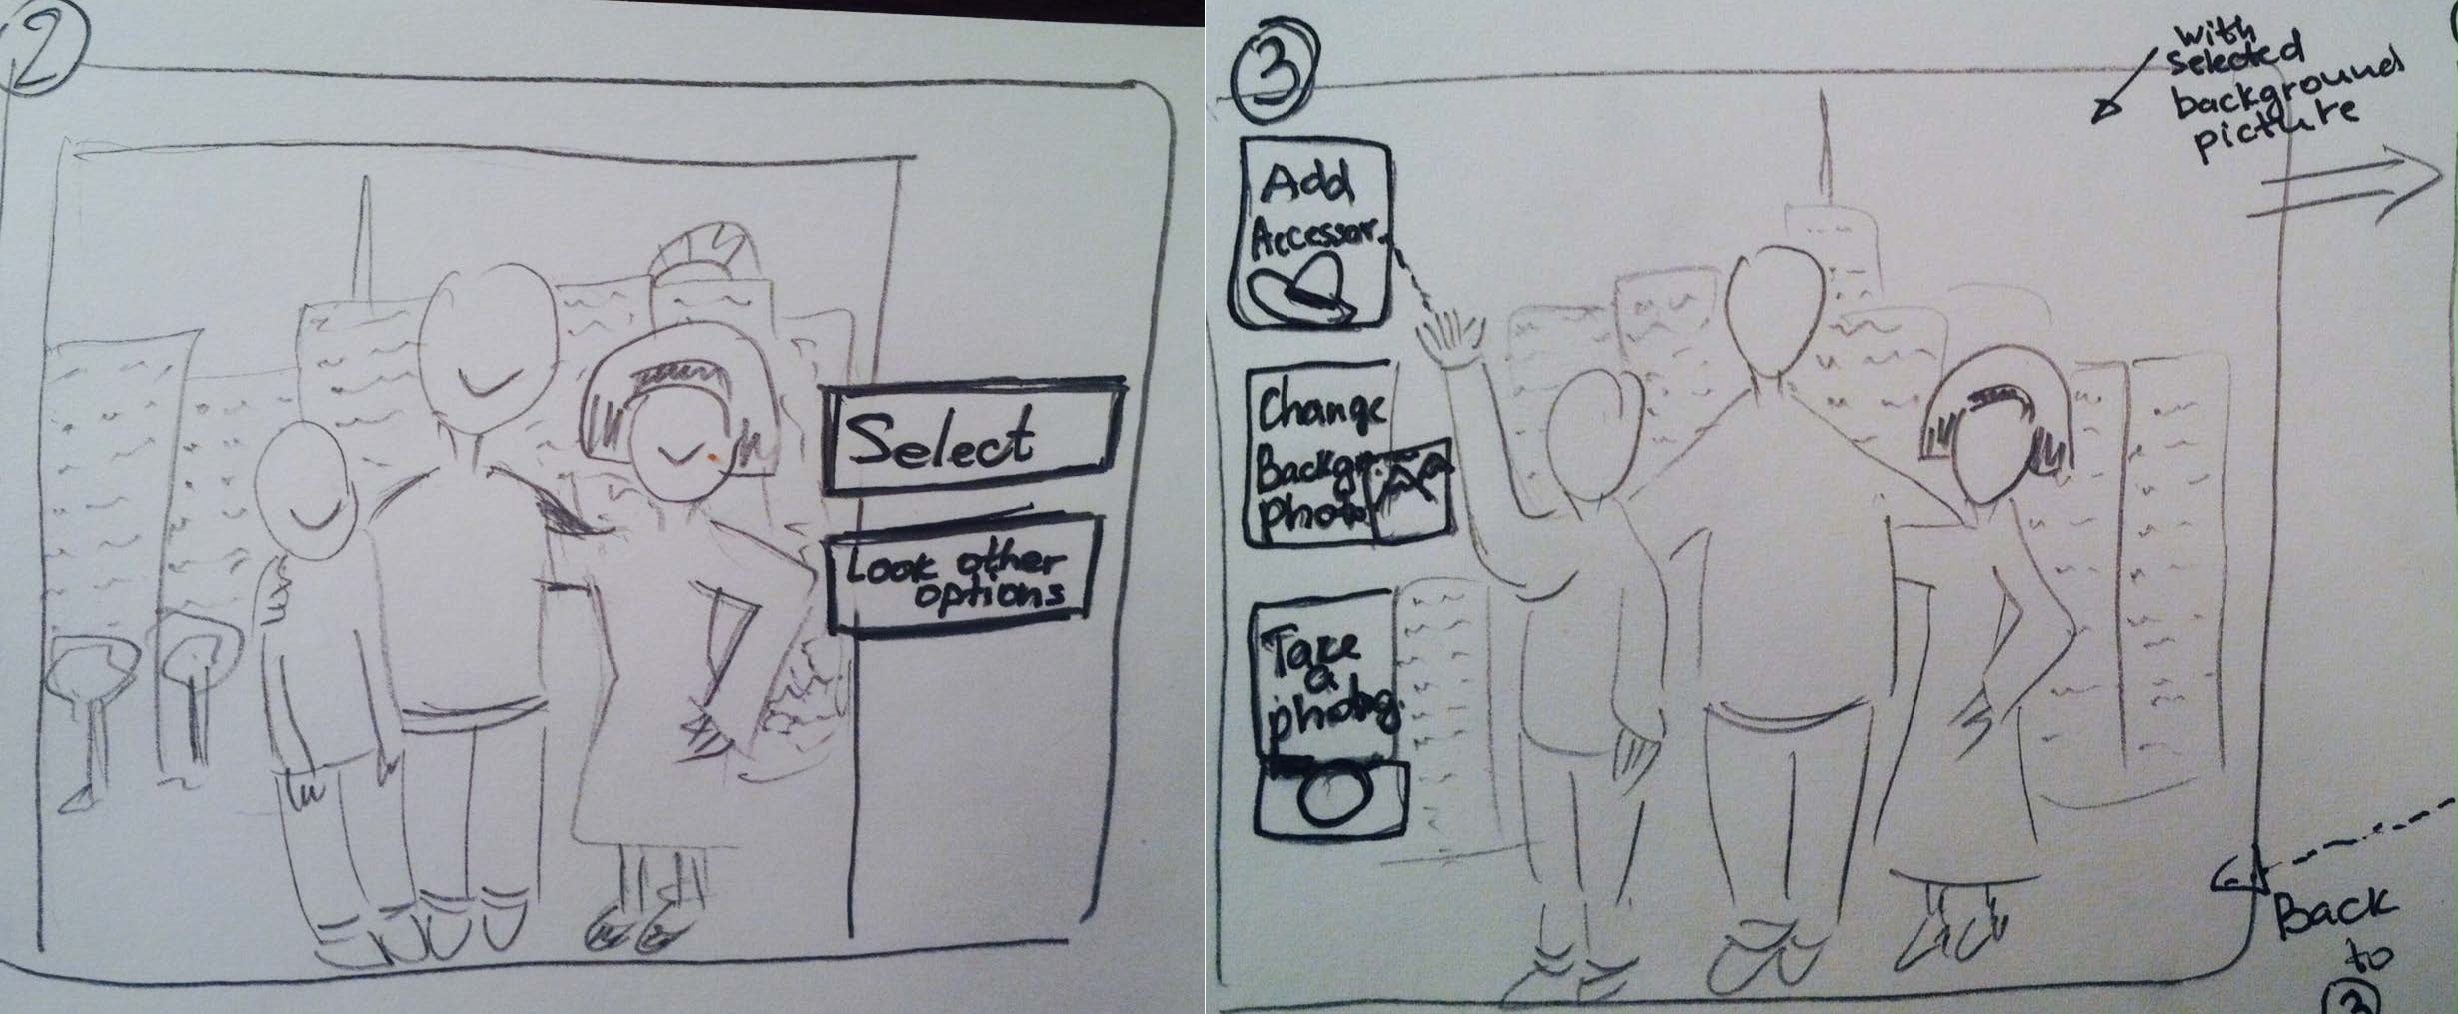 2
Select
Look other
options
3
with
selected
background
picture
Add
Accessor.
Change
Backgr.
photo
Take
a
photog.
Back
to
3